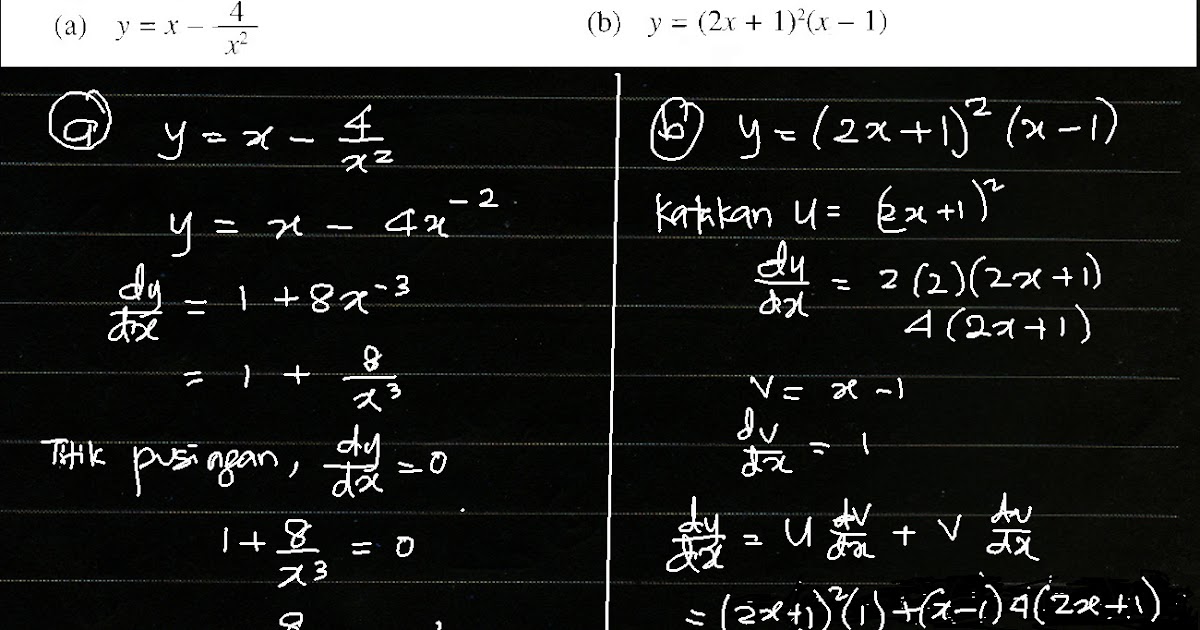 (a) y = x − 4/x²
(b) y = (2x + 1)²(x − 1)
(a) y = x − 4/x²
y = x − 4x⁻²
dy/dx = 1 + 8x⁻³
= 1 + 8/x³
Titik pusingan, dy/dx = 0
1 + 8/x³ = 0
8
(b) y = (2x+1)² (x−1)
Katakan u = (2x+1)²
dy/dx = 2(2)(2x+1)
4(2x+1)
v = x − 1
dv/dx = 1
dy/dx = u dv/dx + v du/dx
= (2x+1)²(1) + (x−1)4(2x+1)